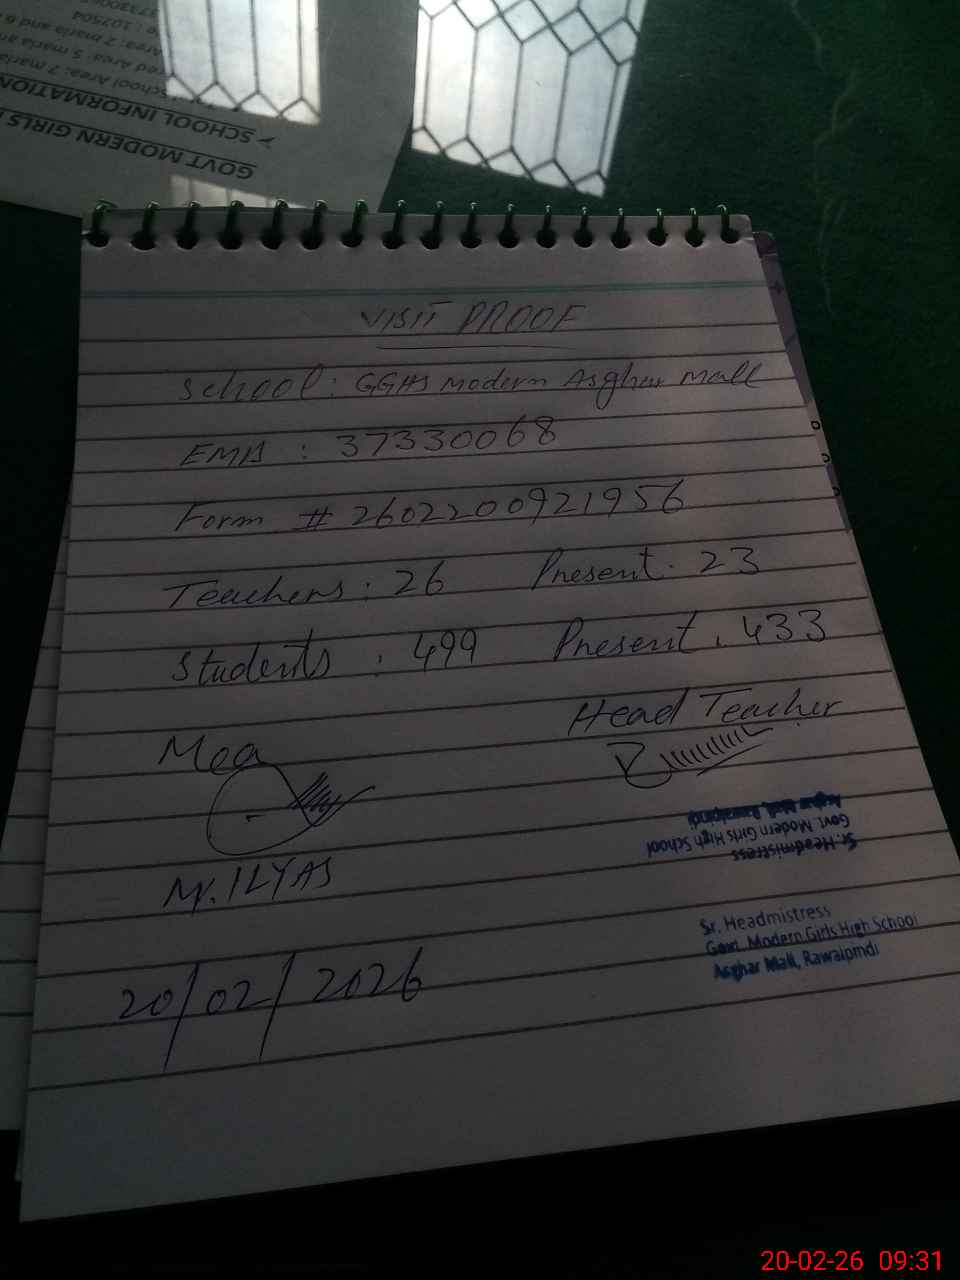 GOVT MODERN GIRLS
➤ SCHOOL INFORMATION
School Area: 7 marla
red Area: 5 marla an
Area: 2 marla and 6
: 107504
VISIT PROOF
School: GGHS Modern Asghar Mall
EMIS : 37330068
Form # 2602200921956
Teachers: 26 Present. 23
Students : 499 Present. 433
Head Teacher
Mea
Sr. Headmistress
Govt. Modern Girls High School
Asghar Mall, Rawalpindi
M. ILYAS
Sr. Headmistress
Govt. Modern Girls High School
Asghar Mall, Rawalpindi
20/02/2026
20-02-26 09:31